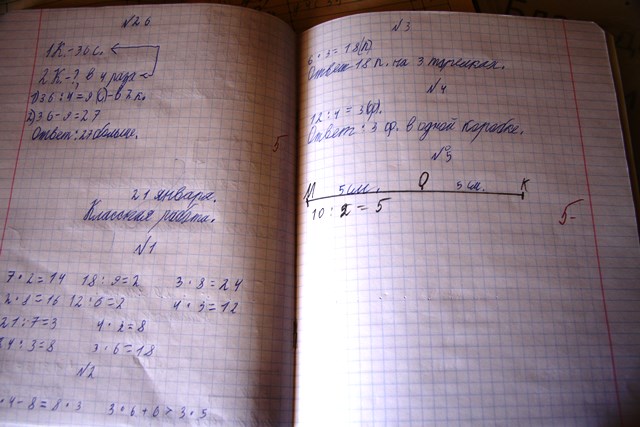 №26
1К.-36с.
2К-?, в 4 раза
1) 36:4=9(с)-в 2к.
2) 36-9=27
Ответ: 27 больше.
5
21 января.
Классная работа.
№1
7·2=14 18:9=2 3·8=24
2·8=16 12:6=2 4·3=12
21:7=3 4·2=8
24:3=8 3·6=18
№2
·4-8=8·3 3·6+6>3·5
№3
6·3=18(п)
Ответ 18 п. на 3 тарелках.
№4
12:4=3(ф).
Ответ: 3 ф. в одной коробке.
№5
М 5см. О 5см. К
10:2=5
5-